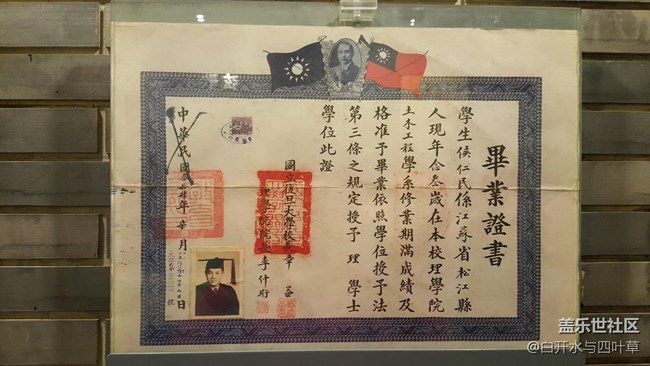 畢業證書
學生侯仁民係江蘇省松江縣
人現年念叁歲在本校理學院
土木工程學系修業期滿成績及
格准予畢業依照學位授予法
第三條之規定授予理學士
學位此證
國立復旦大學校長章益
理學院院長李仲珩
中華民國 年 月 日
號
盖乐世社区
@白开水与四叶草